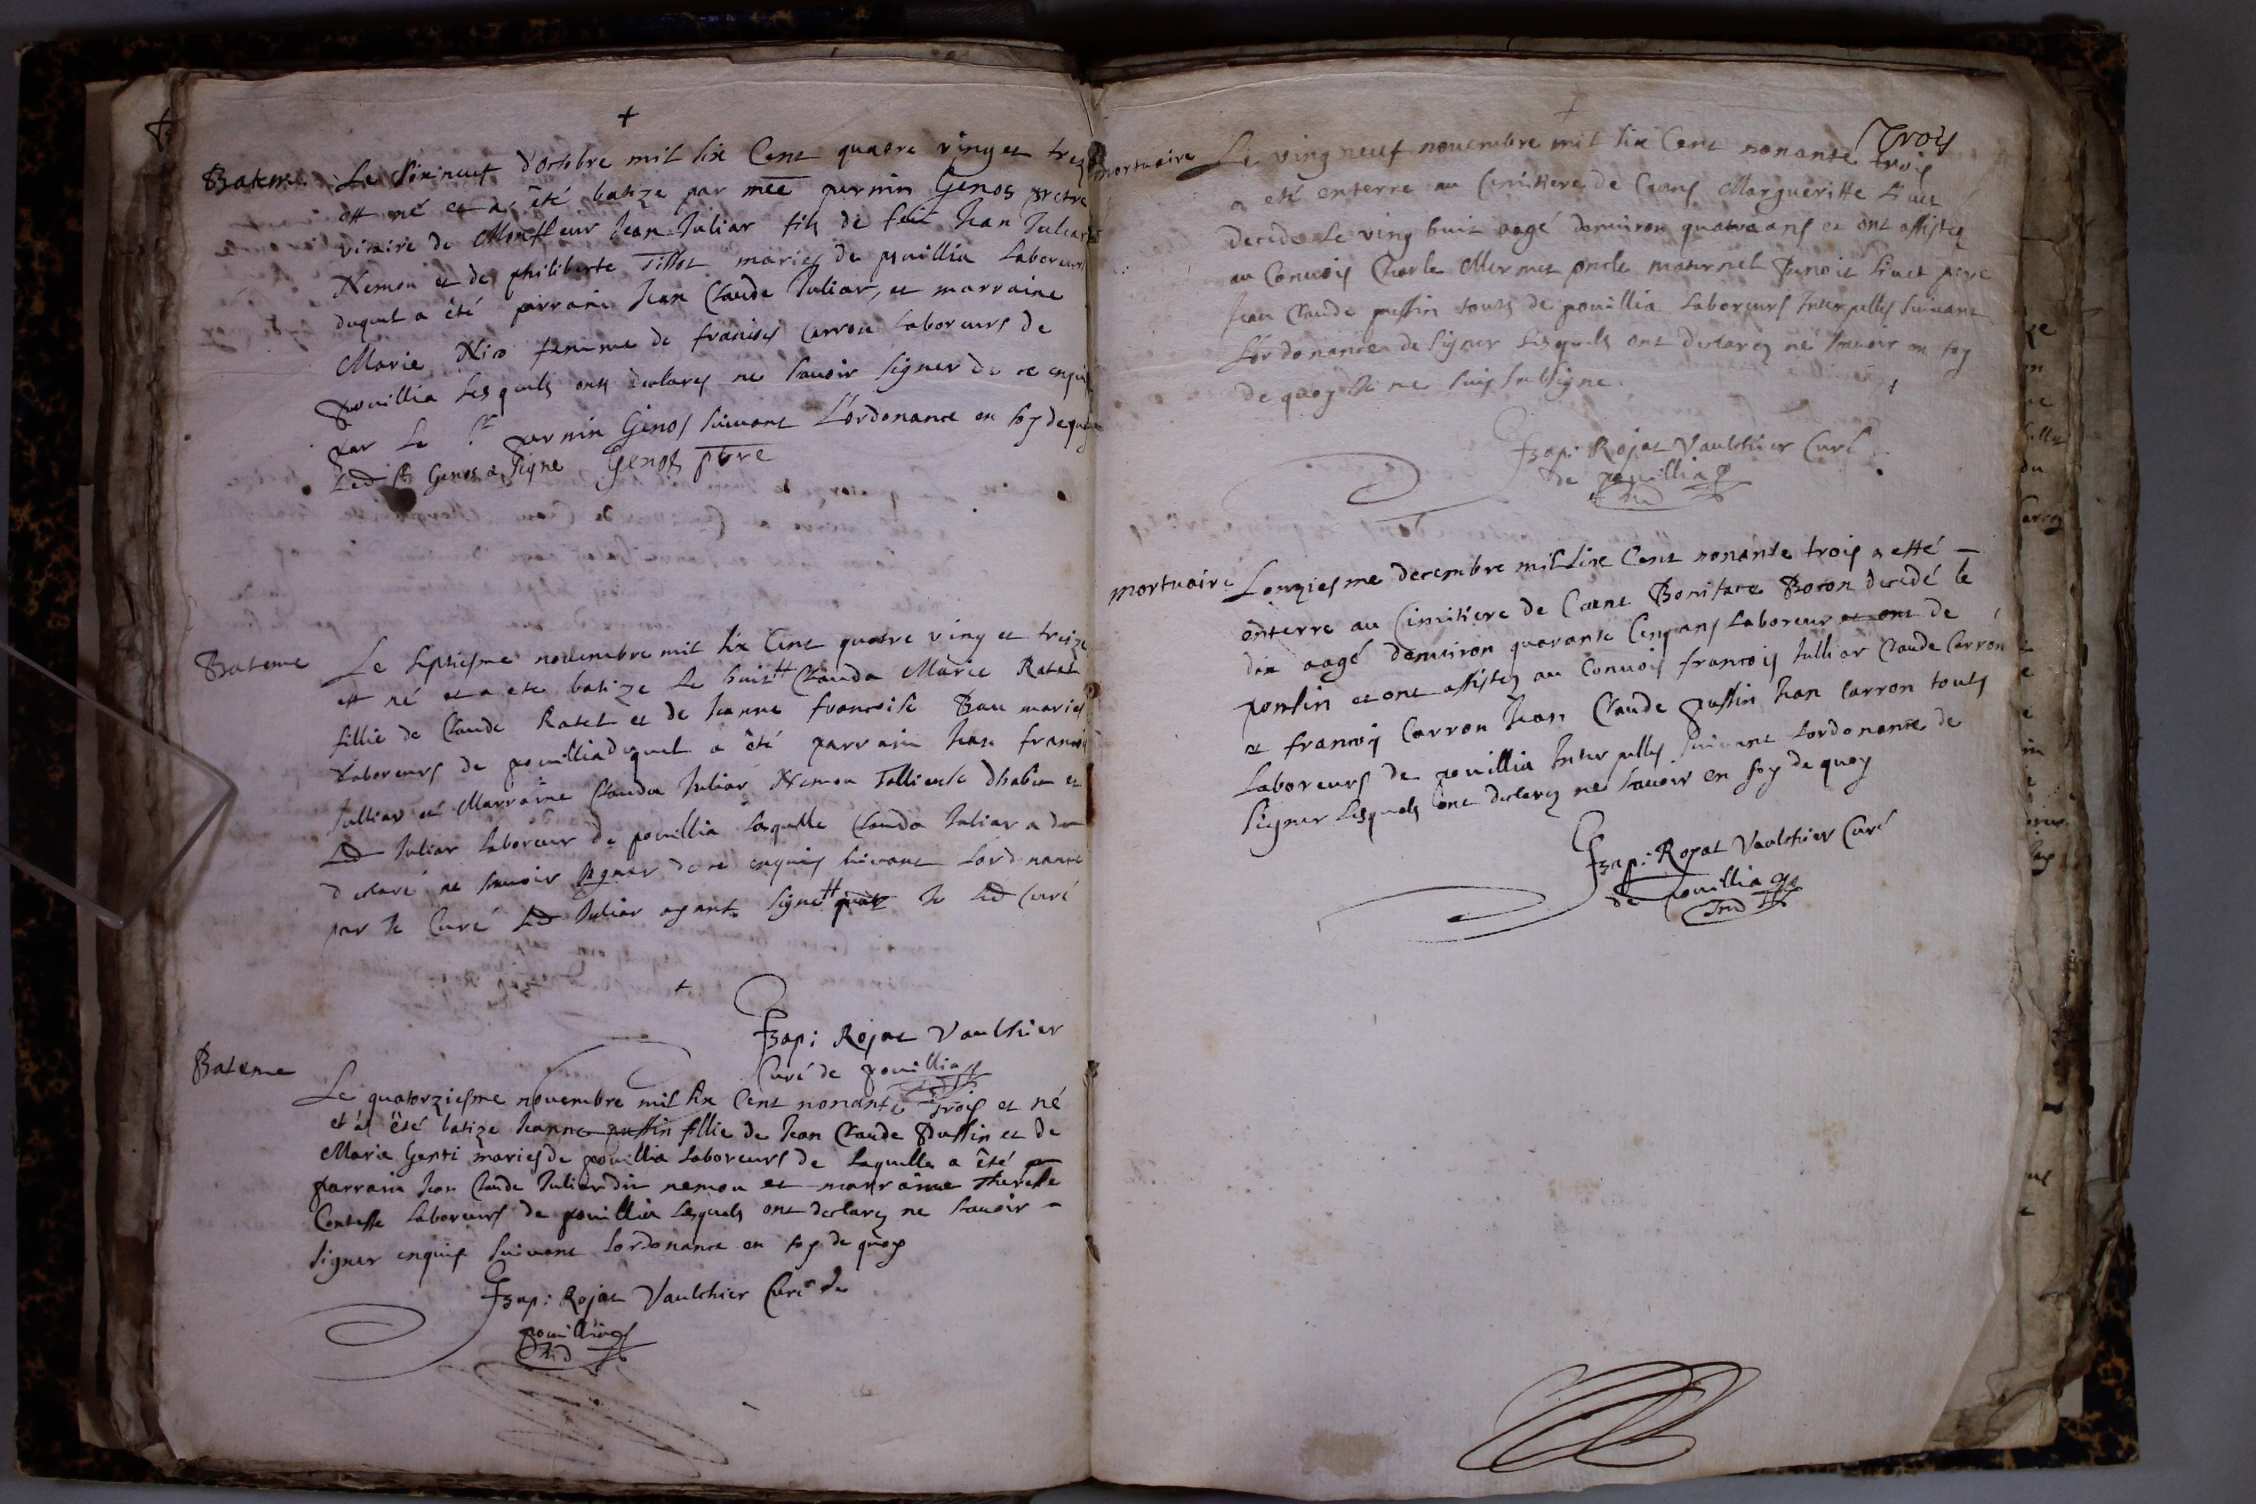 Bateme Le dixneuf d'octobre mil six Cent quatre vingt et treize
est né et a été batize par mee pernin Genos pretre
vicaire de Monsieur Jean Juliar fils de feu Jean Juliar
Nemou et de philiberte Tissot mariés de pouillia Laboreurs
duquel a été parrain Jean Claude Juliar, et marraine
Marie Nico femme de francois Carrou Laboreurs de
pouillia Lesquels onts declarés ne savoir signer de ce enquis
par Le Sr pernin Genos suivant L'ordonance en foy de quoy
Led Sr Genos a signe Genos ptre
Bateme Le septiesme novembre mil six Cent quatre ving et treize
est né et a ete batize Le huit Clauda Marie Ratet
fillie de Claude Ratet et de Jeanne francoise Bau mariés
Laboreurs de pouillia duquel a été parrain Jean francois
Julliar et Marraine Clauda Juliar Nemou
Led Juliar Laboreur de pouillia Laquelle Clauda Juliar a
declaré ne savoir signer de ce enquis suivant Lordonance
par Je Curé Led Juliar ayant signe Je Led Curé
Bap: Rojat Vaulchier
Curé de pouillia
Bateme
Le quatorziesme novembre mil six Cent nonante trois et né
et a été batize Jeanne pussin fillie de Jean Claude Pussin et de
Marie Genti mariés de pouillia Laboreurs de Laquelle a été
parrain Jean Claude Juliar dit nemou et marraine Theresse
Contesse Laboreurs de pouillia Lesquels ont declarez ne savoir
signer enquis suivant Lordonance en foy de quoy
Bap: Rojat Vaulchier Curé de
pouillia
Trois
mortuaire Le ving neuf novembre mil six Cent nonante trois
a eté enterre au Cimitiere de Crans Margueritte Livet
decede Le ving huit aagé denviron quatre ans et ont assistez
au Convois Charle Mermet oncle maternel Benoit Livet pere
Jean Claude pussin touts de pouillia Laboreurs Interpelles suivant
L'ordonance de signer Lesquels ont declarez ne savoir en foy
de quoy Je me suis subsigne.
Bap: Rojat Vaulchier Curé
de pouillia
mortuaire Lonziesme decembre mil six Cent nonante trois a etté
enterre au Cimitiere de Crans Boniface Boron decedé le
dix aagé denviron quarante Cenq ans Laboreur et ont de
ponsin et ont assistez au Convois francois Julliar Claude Carron
et francois Carron Jean Claude pussin Jean Carron touts
Laboreurs de pouillia Interpelles suivant Lordonance de
signer Lesquels ont declarez ne savoir en foy de quoy
Bap: Rojat Vaulchier Curé
de pouillia